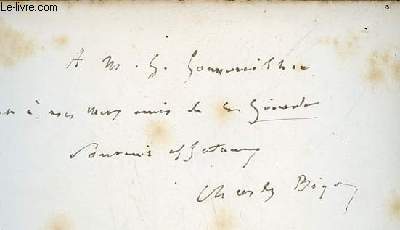 Le-livre.com
A M. G. Gounouilhou
à nos amis de la Gironde
Souvenir affectueux
Charles Bigot